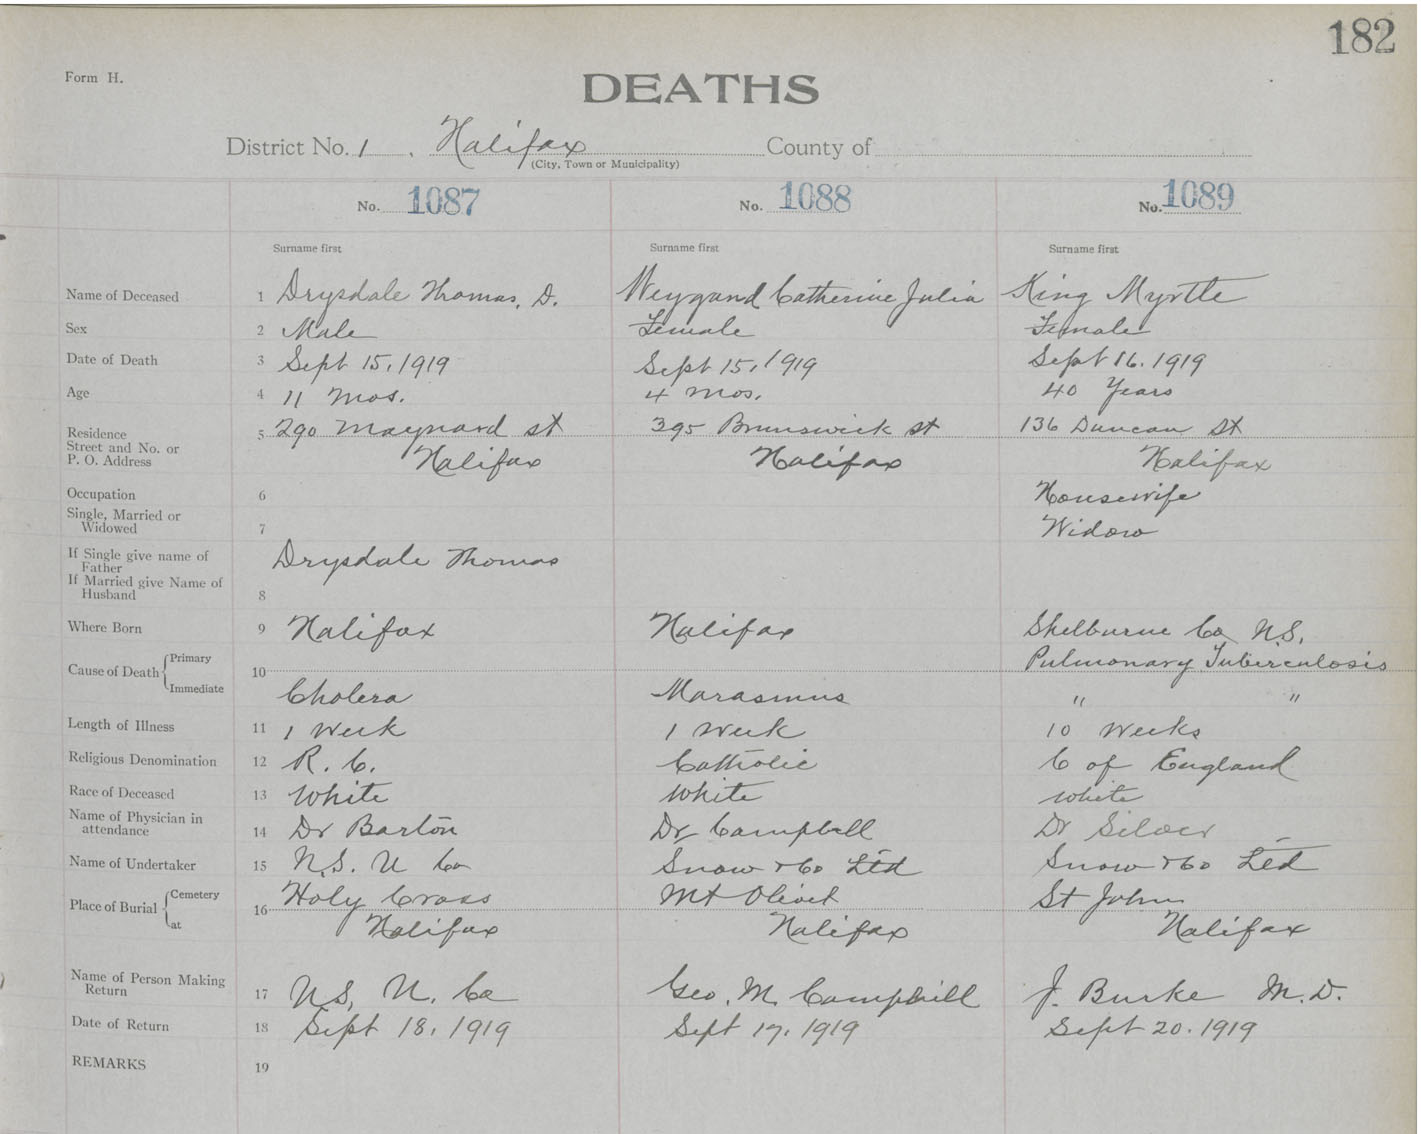 182
Form H.
DEATHS
District No. 1. Halifax County of
(City, Town or Municipality)
No. 1087 No. 1088 No. 1089
Surname first Surname first Surname first
Name of Deceased 1 Drysdale Thomas. D. Weygand Catherine Julia King Myrtle
Sex 2 Male Female Female
Date of Death 3 Sept 15, 1919 Sept 15, 1919 Sept 16. 1919
Age 4 11 mos. 4 mos. 40 Years
Residence 5 290 Maynard st 395 Brunswick st 136 Duncan st
Street and No. or
P. O. Address Halifax Halifax Halifax
Occupation 6 Housewife
Single, Married or
Widowed 7 Widow
If Single give name of
Father Drysdale Thomas
If Married give Name of
Husband 8
Where Born 9 Halifax Halifax Shelburne Co N.S.
Cause of Death Primary 10 Pulmonary Tuberculosis
Immediate Cholera Marasmus " "
Length of Illness 11 1 Week 1 Week 10 weeks
Religious Denomination 12 R. C. Catholic C of England
Race of Deceased 13 White White white
Name of Physician in
attendance 14 Dr Barton Dr Campbell Dr Silver
Name of Undertaker 15 N.S. U Co Snow & Co Ltd Snow & Co Ltd
Place of Burial Cemetery 16 Holy Cross Mt Olivet St John
at Halifax Halifax Halifax
Name of Person Making
Return 17 N.S. U. Co Geo. M. Campbell J. Burke M.D.
Date of Return 18 Sept 18, 1919 Sept 17. 1919 Sept 20. 1919
REMARKS 19